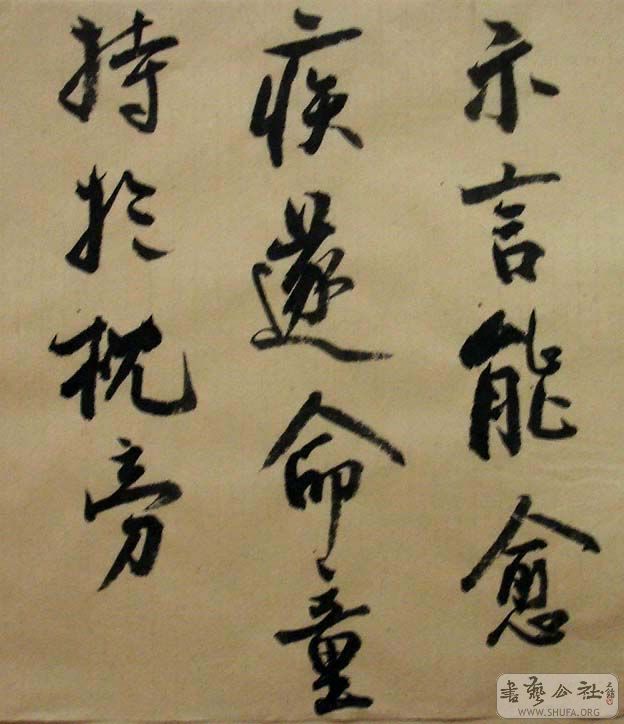 示言能愈
疾遂命童
持於枕旁
書藝公社
WWW.SHUFA.ORG